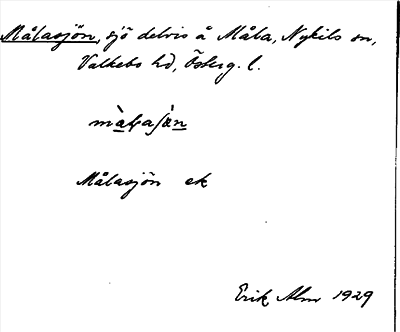 Målasjön, sjö delvis å Måla, Nykils sn,
Valkebo hd, Österg. l.
Målasjön ek
Erik Alm 1929